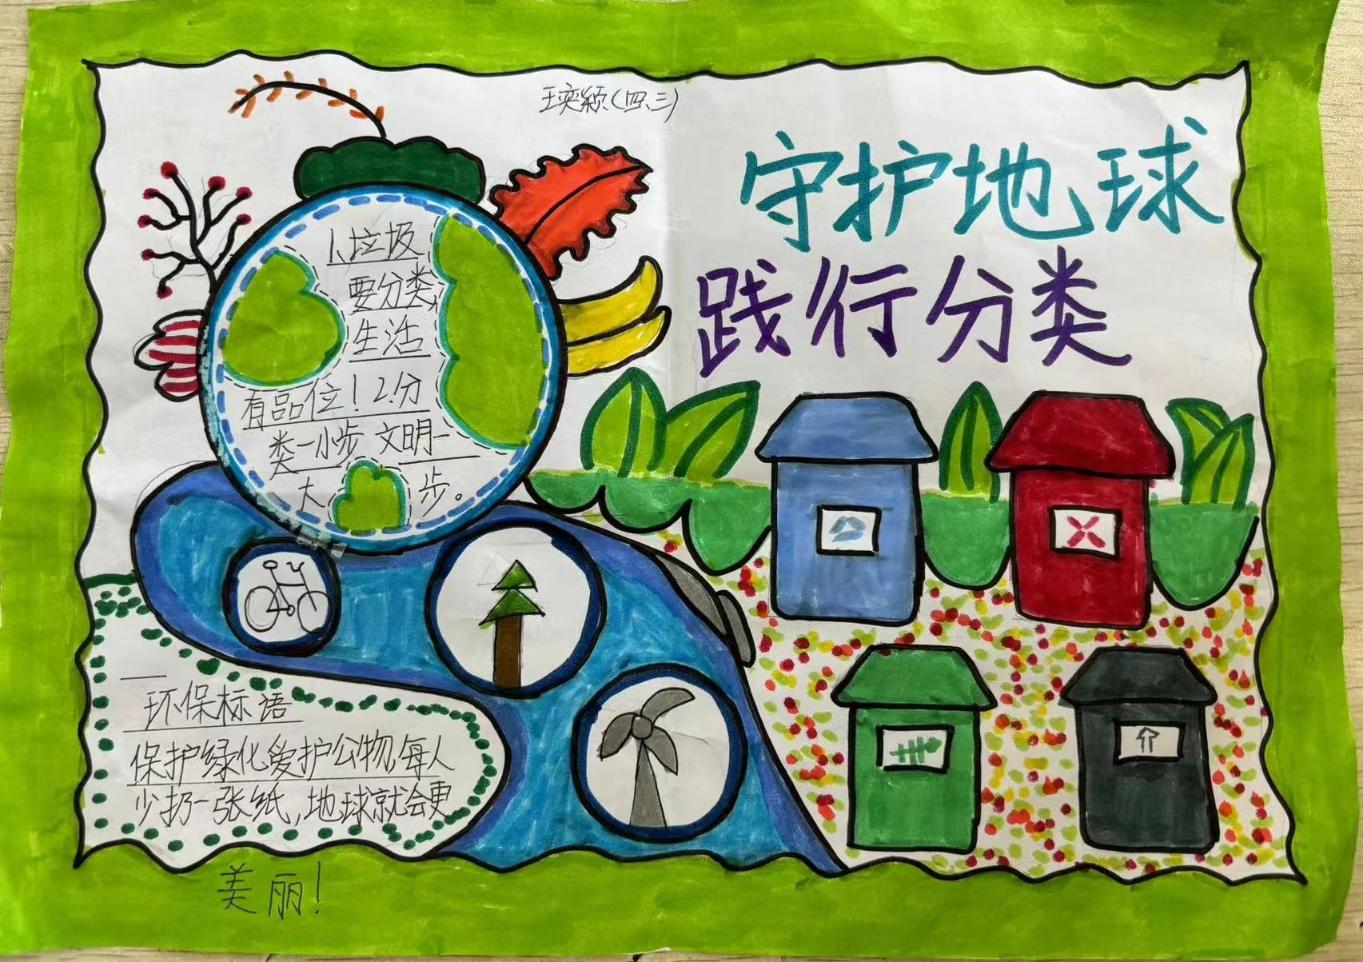 王奕颖(四.三)
守护地球
践行分类
1.垃圾
要分类,
生活
有品位!2.分
类一小步 文明一
大 步。
环保标语
保护绿化爱护公物,每人
少扔一张纸,地球就会更
美丽!